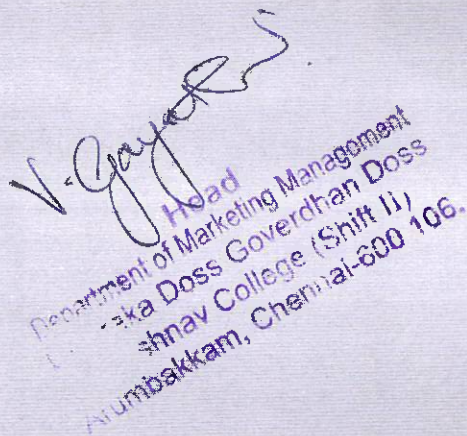 V. Gayatri
Head
Department of Marketing Management
Doss Goverdhan Doss
College (Shift II),
Arumbakkam, Chennai-600 106.